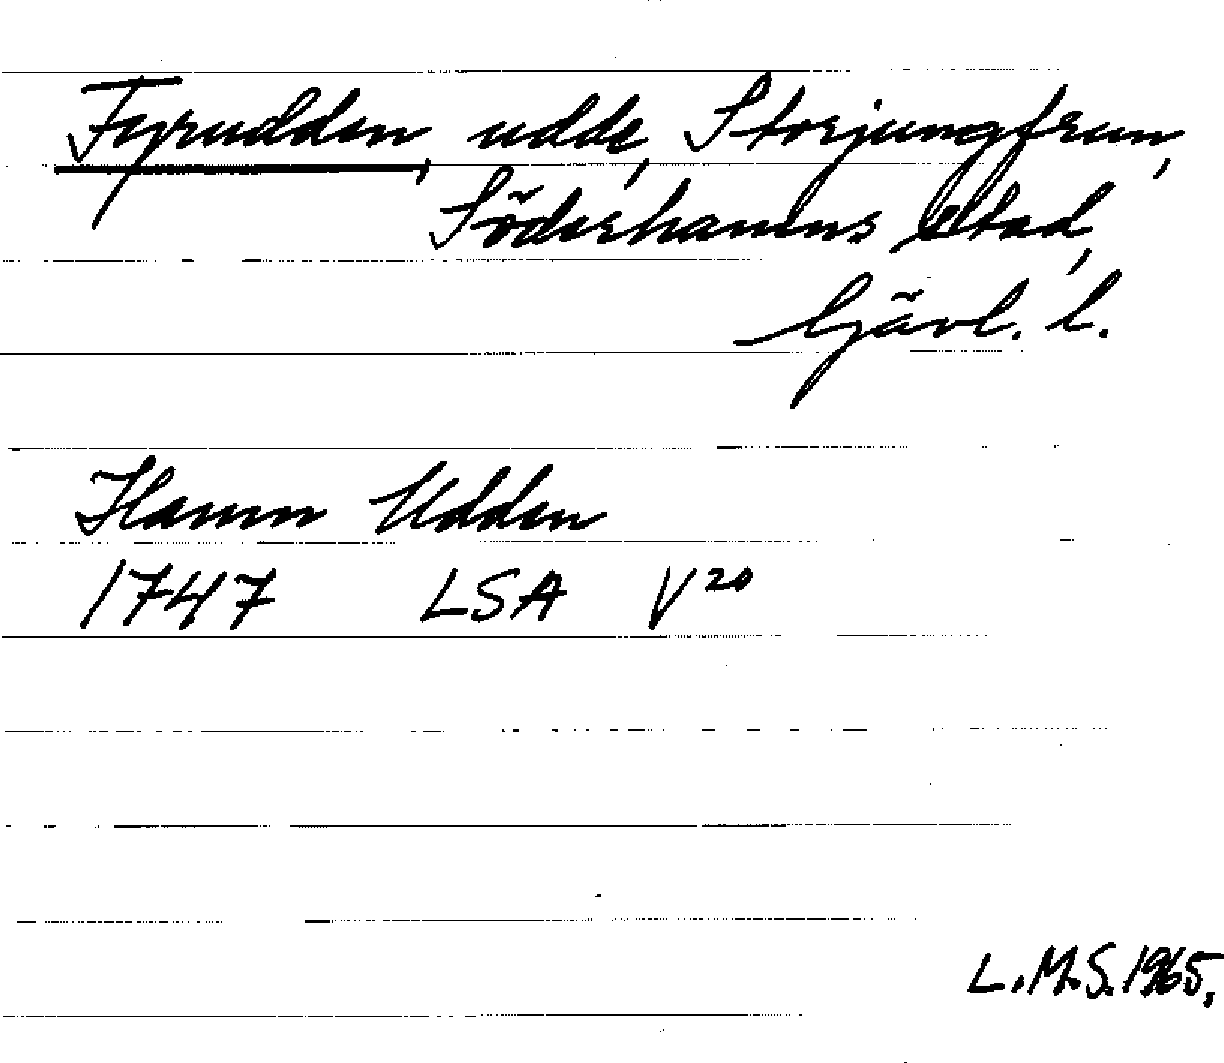 Fyrudden, udde, Storjungfrun,
Söderhamns stad,
Gävl. l.
Hamn Udden
1747 LSA V²⁰
L.M.S. 1965.